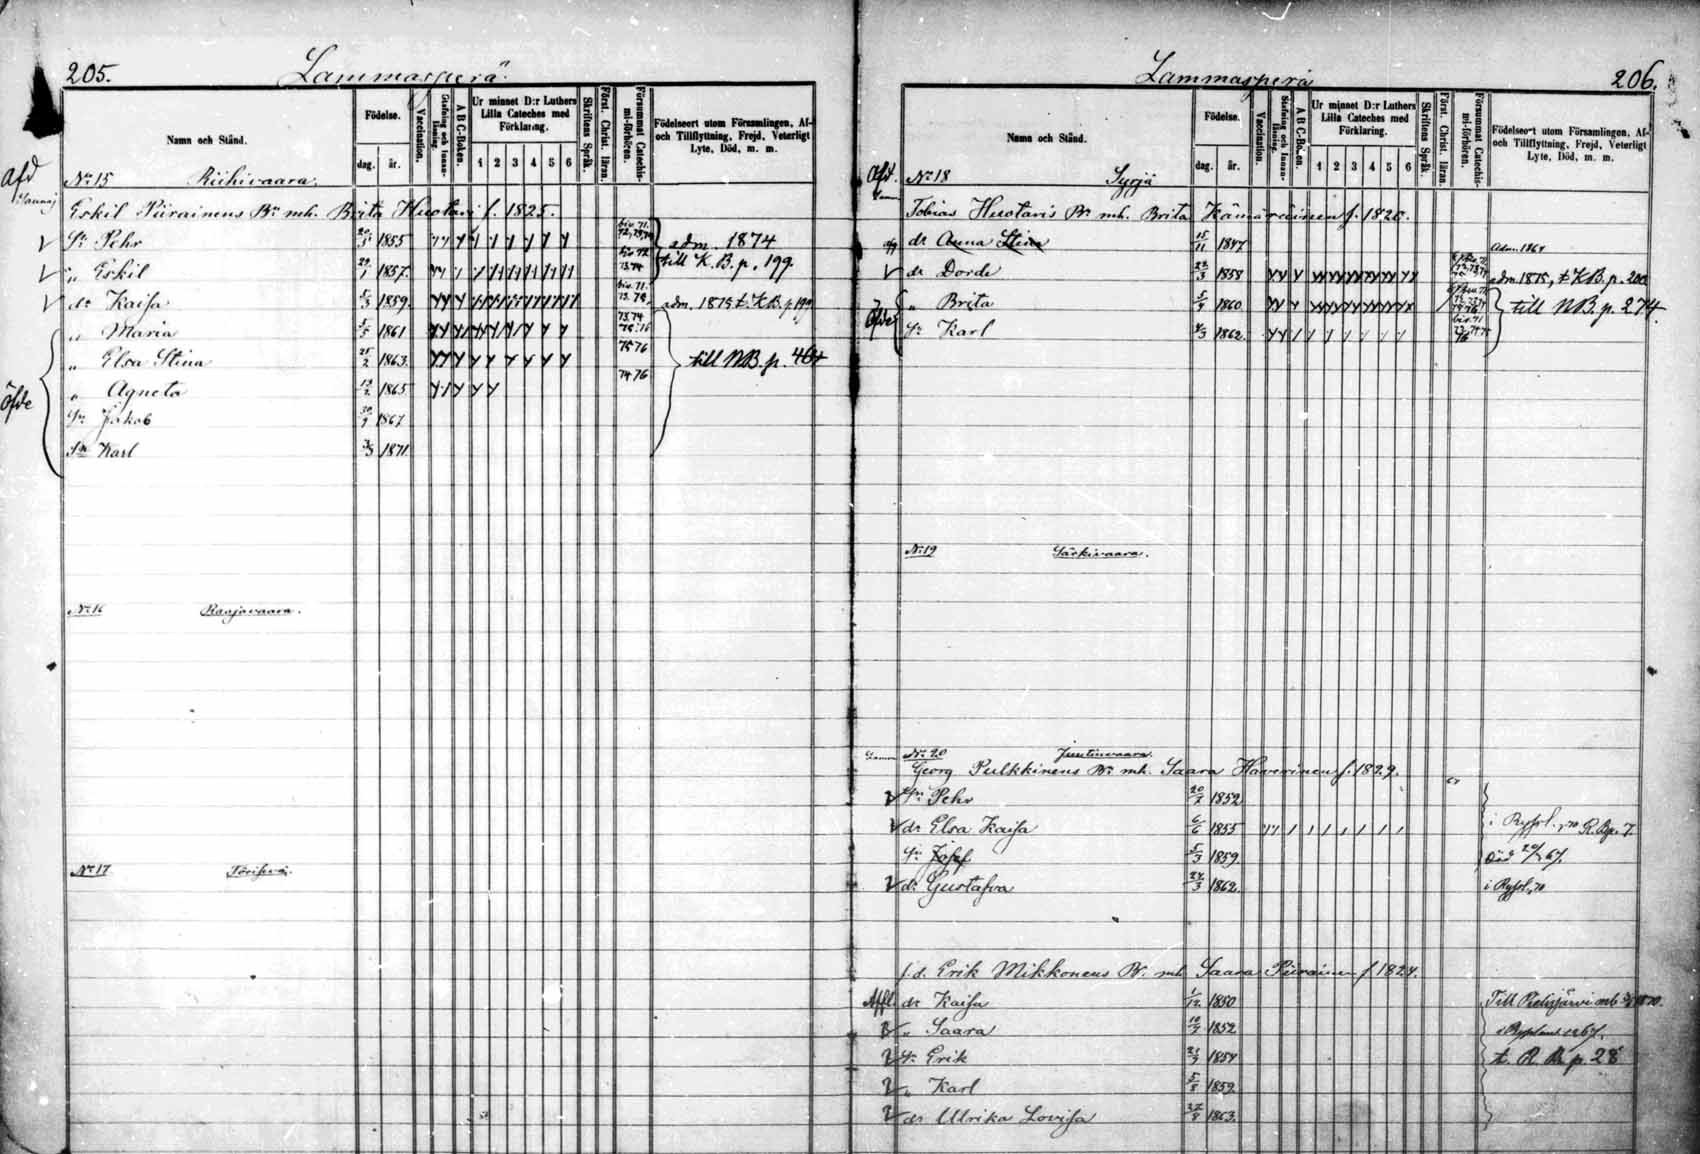 205. Lammasperä
Namn och Stånd.
Födelse.
dag. år.
Vaccination.
Stafning och Innan-läsning.
A B C-Boken.
Ur minnet D:r Luthers Lilla Cateches med Förklaring.
1 2 3 4 5 6
Skriftens Språk.
Först. Christ. läran.
Försummat Catechis-mi-förhören.
Födelseort utom Församlingen, Af- och Tillflyttning, Frejd, Veterligt Lyte, Död, m. m.
Afd
No 15 Riihivaara.
Eskil Piirainens Br mh. Brita Huotari f. 1825.
Sn Pehr 1855 adm. 1874
" Eskil 1857. till K.B. p. 199
dr Kaisa 5/3 1859. adm. 1875 t. KB. p 199
" Maria 1861
" Elsa Stina 25/2 1863. 75 76 till NB. p. 464
" Agneta 1865 74 76
Öfde
Sn Jakob 1867
Sn Karl 3/3 1871.
No 16 Raajavaara.
No 17
Lammasperä 206.
Namn och Stånd.
Födelse.
dag. år.
Vaccination.
Stafning och Innan-läsning.
A B C-Boken.
Ur minnet D:r Luthers Lilla Cateches med Förklaring.
1 2 3 4 5 6
Skriftens Språk.
Först. Christ. läran.
Försummat Catechis-mi-förhören.
Födelseort utom Församlingen, Af- och Tillflyttning, Frejd, Veterligt Lyte, Död, m. m.
Afd.
No 18 Syrjä
Tobias Huotaris Br mh. Brita Kämäräinen f. 1820.
dr Anna Stina 15/11 1847 Adm. 1864
dr Dorde 23/3 1858 adm. 1875, t. KB. p. 200
" Brita 1860 till NB. p. 274.
Öfde
Sn Karl 1862.
No 19 Särkivaara.
No 20 Juutinvaara.
Georg Pulkkinens Br mh. Saara Haverinen f. 1829.
Sn Pehr 1852
dr Elsa Kaisa 6/6 1855 i Ryssl. 70 R.B. p. 7.
Sn Josef 5/3 1859. Död 67.
dr Gustafva 24/3 1862. i Ryssl. 70
f. d. Erik Mikkonens Br. mh Saara Piirainen f 1824.
Affl. dr Kaisa 1/12 1850 Till Pielisjärvi
" Saara 1852 1867.
Sn Erik 1854 t. R. B. p. 28
" Karl 1859.
dr Ulrika Lovisa 1863.